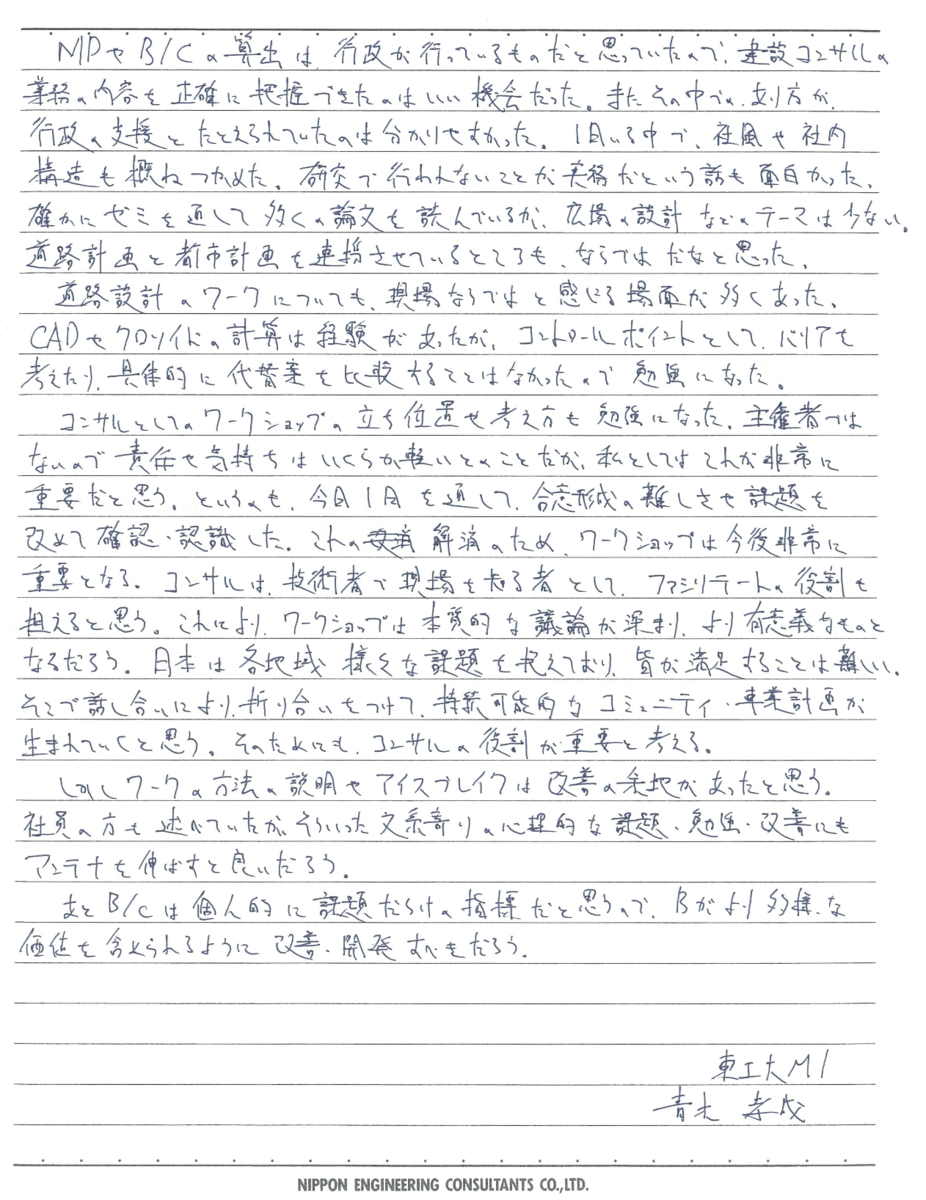 MPやB/Cの算出は、行政が行っているものだと思っていたので、建設コンサルの
業務の内容を正確に把握できたのはいい機会だった。またその中での、あり方が、
行政の支援とたとえられていたのは分かりやすかった。1日いる中で、社風や社内
構造も概ねつかめた。研究で行われないことが実務だという話も面白かった。
確かにゼミを通して多くの論文を読んでいるが、広場の設計などのテーマは少ない。
道路計画と都市計画を連携させているところも、ならではだなと思った。
道路設計のワークについても、現場ならではと感じる場面が多くあった。
CADやクロソイドの計算は経験があったが、コントロールポイントとして、バリアを
考えたり、具体的に代替案を比較することはなかったので勉強になった。
コンサルとしてのワークショップの立ち位置や考え方も勉強になった。主催者では
ないので責任や気持ちはいくらか軽いとのことだが、私としてはこれが非常に
重要だと思う。というのも、今日1日を通して、合意形成の難しさや課題を
改めて確認・認識した。これの解消のため、ワークショップは今後非常に
重要となる。コンサルは、技術者で現場を知る者として、ファシリテートの役割も
担えると思う。これにより、ワークショップは本質的な議論が深まり、より有意義なものと
なるだろう。日本は各地域様々な課題を抱えており、皆が満足することは難しい。
そこで話し合いにより、折り合いをつけて、持続可能的なコミュニティ・事業計画が
生まれていくと思う。そのためにも、コンサルの役割が重要と考える。
しかしワークの方法の説明やアイスブレイクは改善の余地があったと思う。
社員の方も述べていたが、そういった文系寄りの心理的な課題・勉強・改善にも
アンテナを伸ばすと良いだろう。
あとB/Cは個人的に課題だらけの指標だと思うので、Bがより多様な
価値を含められるように改善・開発すべきだろう。
東工大M1
青木 孝成
NIPPON ENGINEERING CONSULTANTS CO.,LTD.